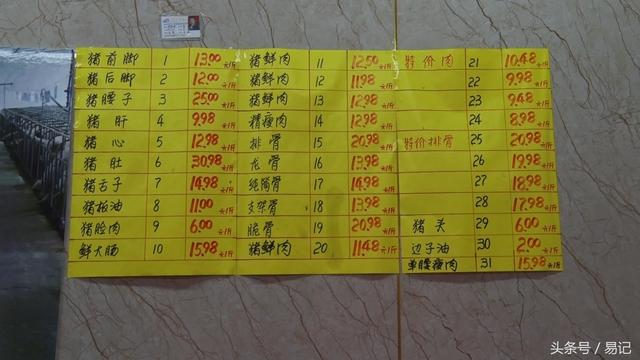 猪前脚 1 13.00元/斤
猪后脚 2 12.00元/斤
猪腰子 3 25.00元/斤
猪肝 4 9.98元/斤
猪心 5 12.98元/斤
猪肚 6 30.98元/斤
猪舌子 7 14.98元/斤
猪板油 8 11.00元/斤
猪脸肉 9 6.00元/斤
鲜大肠 10 15.98元/斤
猪鲜肉 11 12.50元/斤
猪鲜肉 12 11.98元/斤
猪鲜肉 13 12.98元/斤
精瘦肉 14 12.98元/斤
排骨 15 20.98元/斤
龙骨 16 13.98元/斤
纯筒骨 17 14.98元/斤
支架骨 18 13.98元/斤
脆骨 19 20.98元/斤
猪鲜肉 20 11.48元/斤
特价肉 21 10.48元/斤
22 9.98元/斤
23 9.48元/斤
24 8.98元/斤
特价排骨 25 20.98元/斤
26 19.98元/斤
27 18.98元/斤
28 17.98元/斤
猪头 29 6.00元/斤
边子油 30 2.00元/斤
单腰瘦肉 31 15.98元/斤
头条号 / 易记